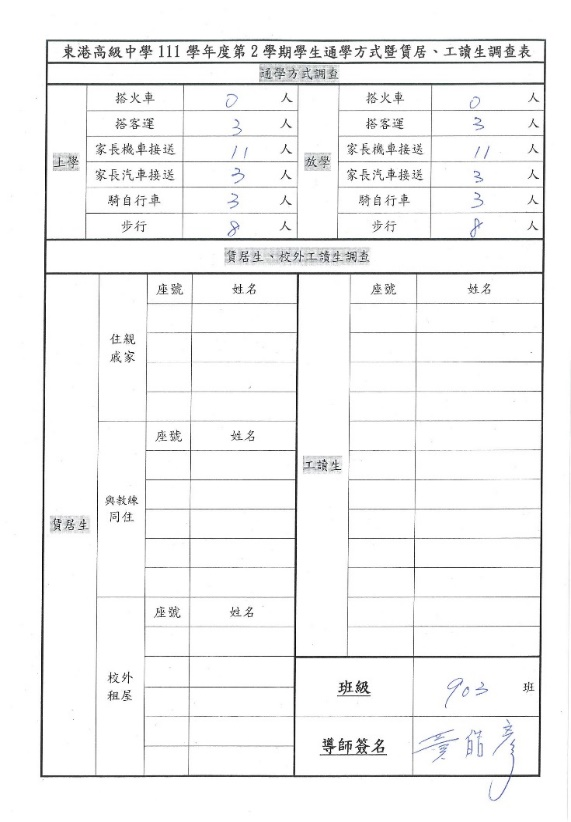 東港高級中學 111 學年度第 2 學期學生通學方式暨賃居、工讀生調查表
通學方式調查
上學 搭火車 0 人 放學 搭火車 0 人
搭客運 3 人 搭客運 3 人
家長機車接送 11 人 家長機車接送 11 人
家長汽車接送 3 人 家長汽車接送 3 人
騎自行車 3 人 騎自行車 3 人
步行 8 人 步行 8 人
賃居生、校外工讀生調查
賃居生 住親戚家 座號 姓名 工讀生 座號 姓名
與教練同住 座號 姓名
校外租屋 座號 姓名
班級 903 班
導師簽名 黃皓彥